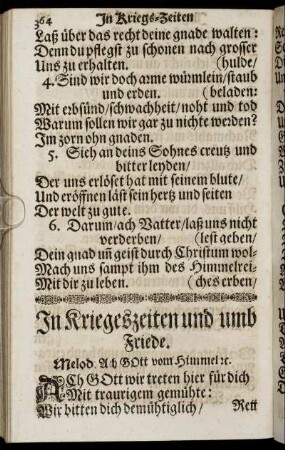 364 In Kriegs-Zeiten
Laß über das recht deine gnade walten:
Denn du pflegst zu schonen nach grosser
Uns zu erhalten. (hulde/
4. Sind wir doch arme würmlein/staub
und erden. (beladen:
Mit erbsünd/schwachheit/noht und tod
Warum sollen wir gar zu nichte werden?
Im zorn ohn gnaden.
5. Sieh an deins Sohnes creutz und
bitter leyden/
Der uns erlöset hat mit seinem blute/
Und eröffnen läst sein hertz und seiten
Der welt zu gute.
6. Darum/ach Vatter/laß uns nicht
verderben/ (lest geben/
Dein gnad uñ geist durch Christum wol-
Mach uns sampt ihm des Himmelrei-
Mit dir zu leben. (ches erben/
In Kriegeszeiten und umb
Friede.
Melod. Ach GOtt vom Himmel ꝛc.
ACh GOtt wir treten hier für dich
Mit traurigem gemühte:
Wir bitten dich demühtiglich/ Rett